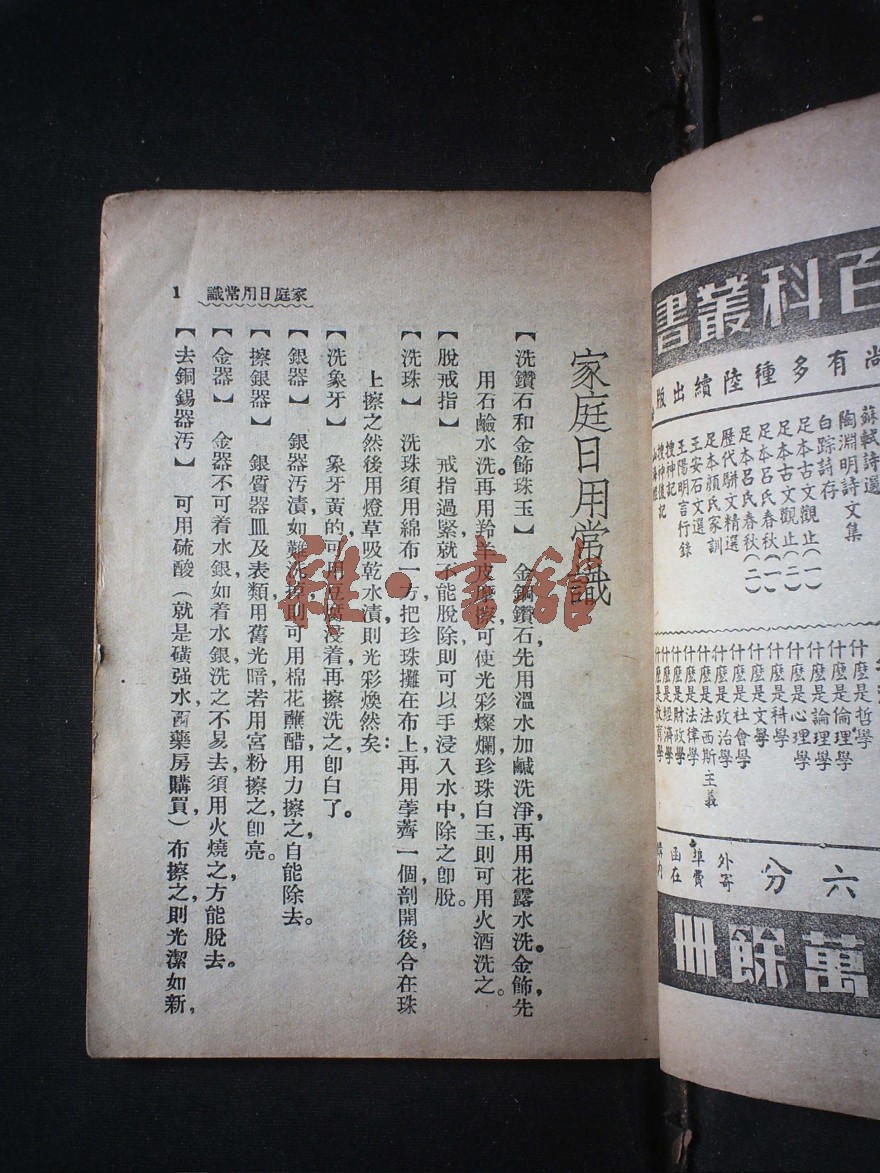 家庭日用常識
【洗鑽石和金飾珠玉】　金鋼鑽石先用溫水加鹹洗淨，再用花露水洗。金飾，先
用石鹼水洗。再用羚羊皮磨擦，可使光彩燦爛，珍珠白玉，則可用火酒洗之。
【脫戒指】　戒指過緊，就不能脫除，則可以手浸入水中，除之卽脫。
【洗珠】　洗珠須用綿布一方，把珍珠攤在布上，再用荸薺一個，剖開後，合在珠
上擦之，然後用燈草吸乾水漬，則光彩煥然矣：
【洗象牙】　象牙黃的，可用豆腐浸着，再擦洗之，卽白了。
【銀器】　銀器汚漬，如難洗掉，則可用棉花蘸醋，用力擦之，自能除去。
【擦銀器】　銀質器皿，及表類，用舊光暗，若用宮粉擦之卽亮。
【金器】　金器不可着水銀，如着水銀，洗之不易去，須用火燒之，方能脫去。
【去銅錫器汚】　可用硫酸（就是磺强水，西藥房購買）布擦之，則光潔如新，
家庭日用常識
1
雜·書館
百科叢書
尚有多種陸續出版
蘇軾詩選
陶淵明詩文集
白踪詩存
足本古文觀止（一）
足本古文觀止（二）
足本呂氏春秋（一）
足本呂氏春秋（二）
歷代駢文精選
足本顏氏家訓
王安石文選
王陽明言行錄
搜神記
搜神後記
什麼是哲學
什麼是倫理學
什麼是論理學
什麼是心理學
什麼是科學
什麼是文學
什麼是社會學
什麼是政治學
什麼是法律學
什麼是法西斯主義
什麼是財政學
什麼是經濟學
什麼是教育學
六分
外寄
埠費
函在
內
萬餘冊